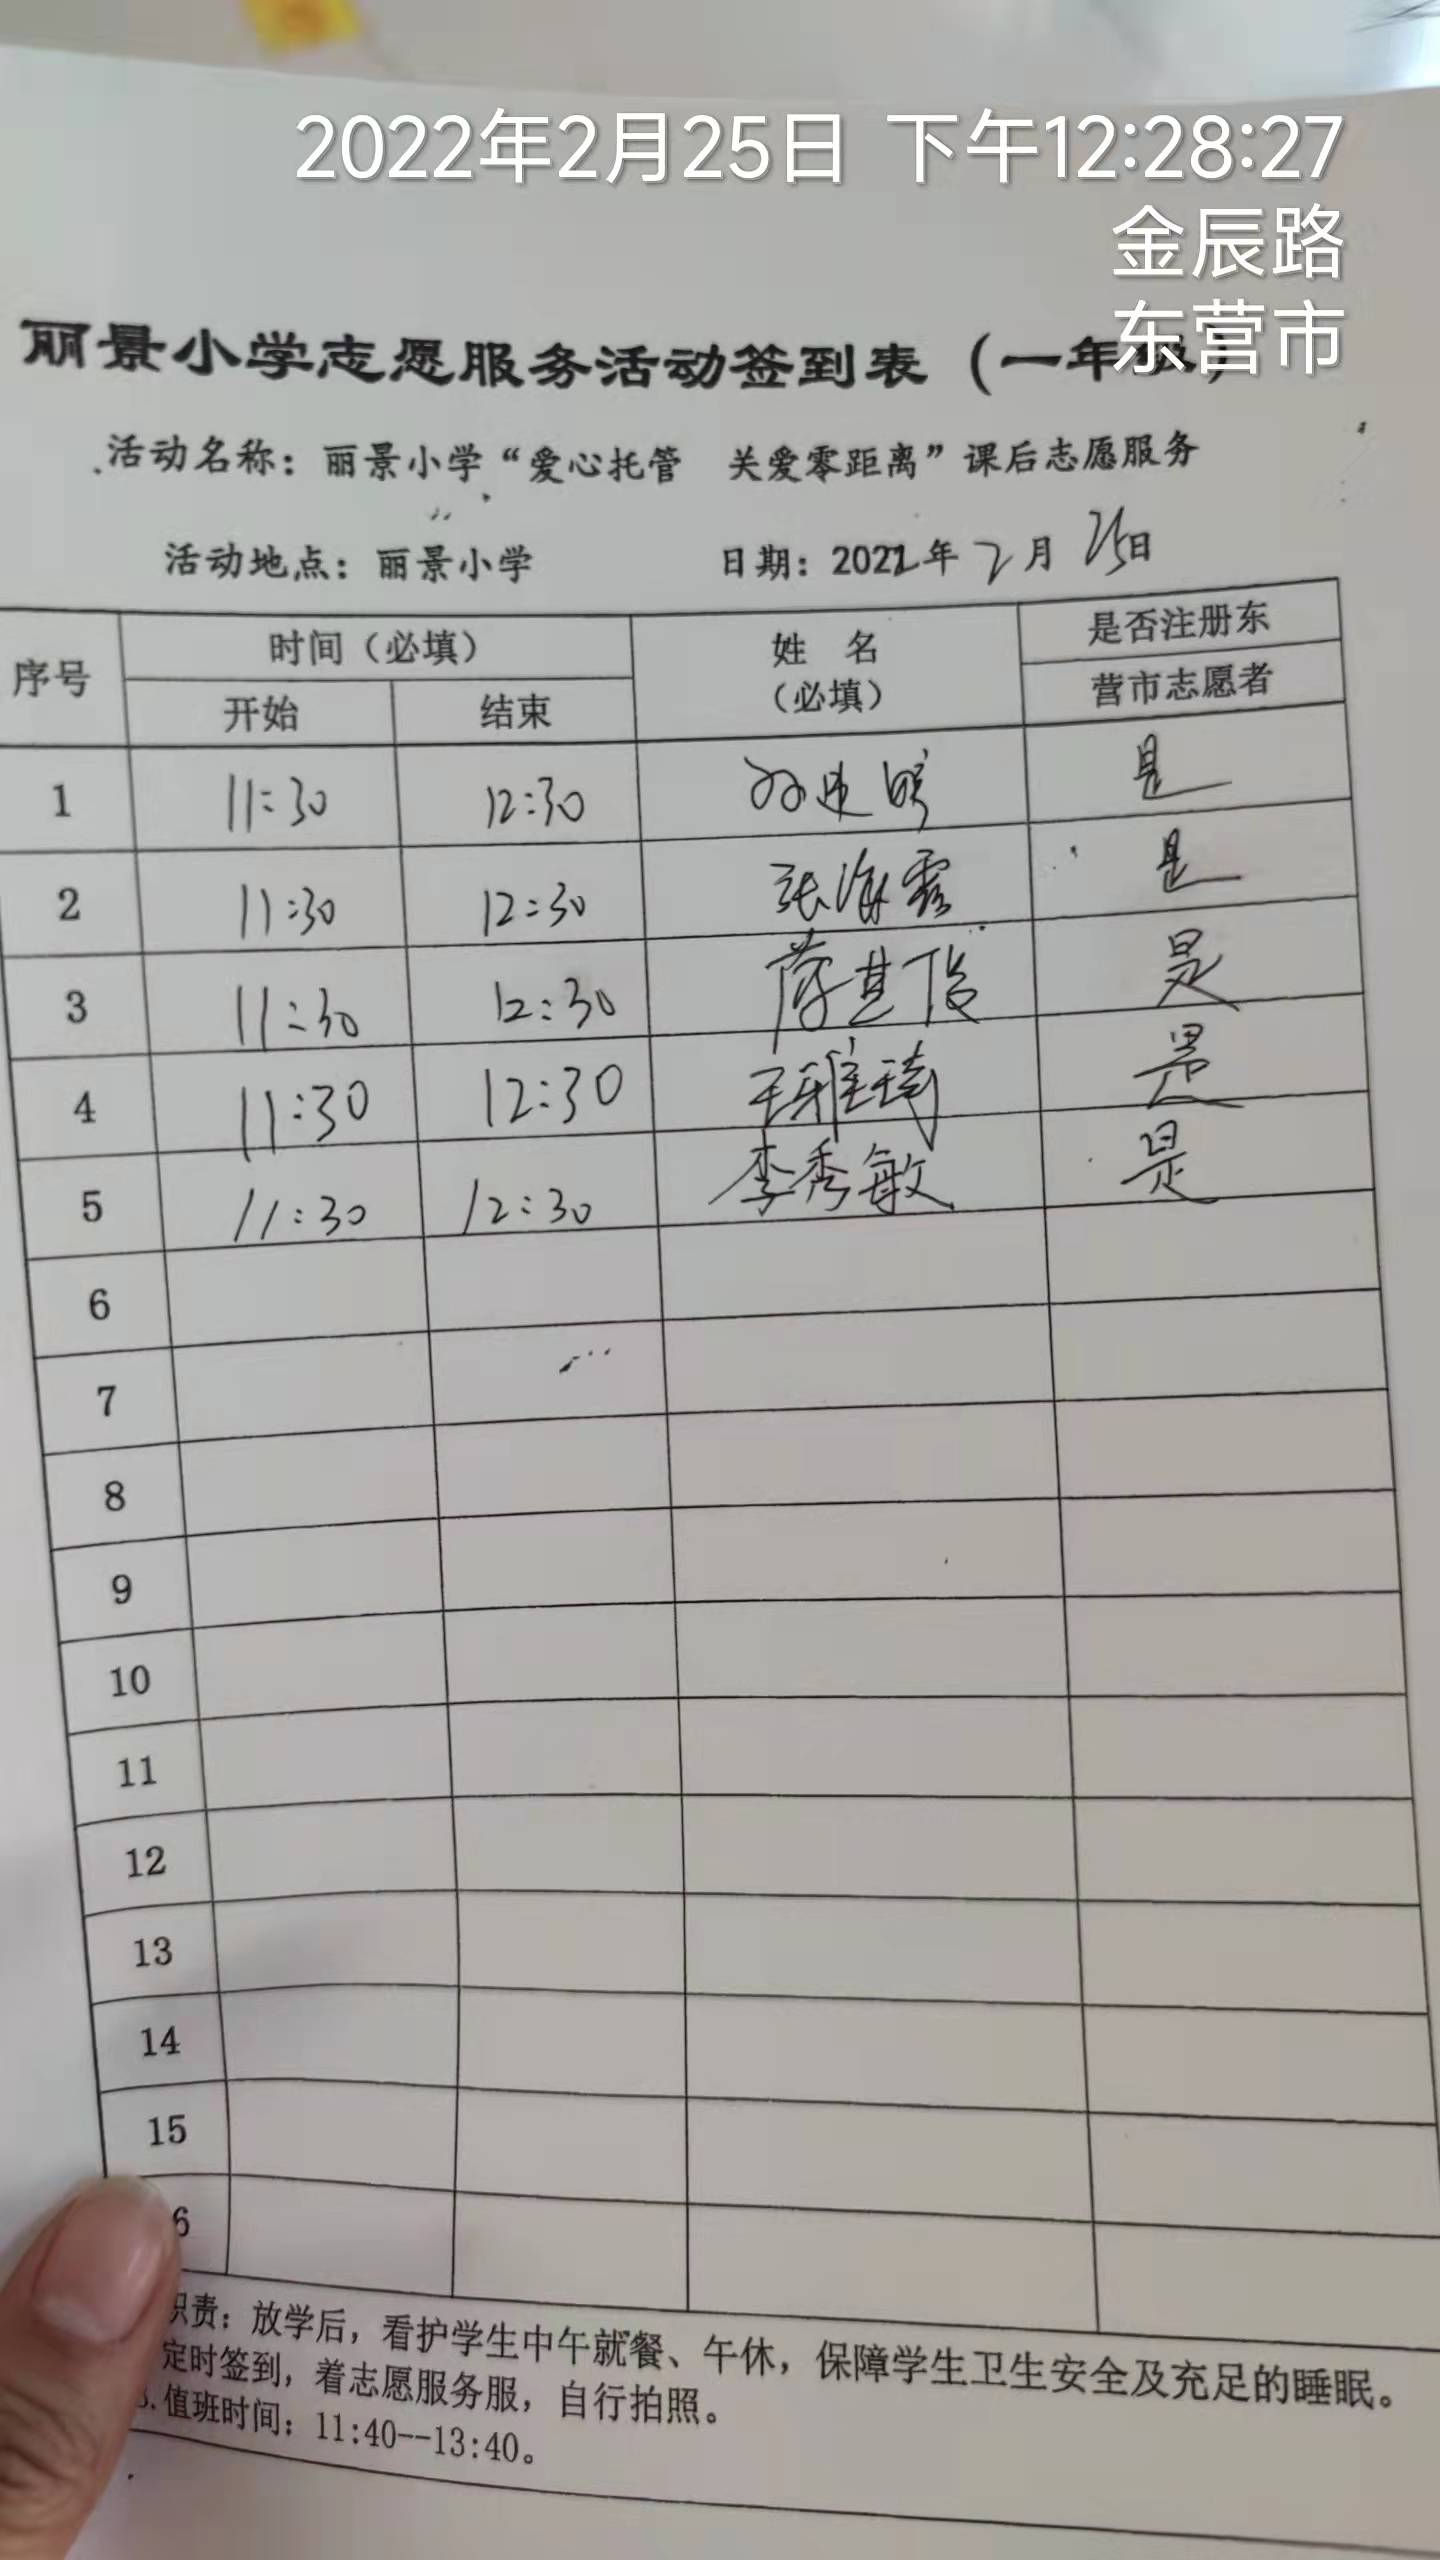 2022年2月25日 下午12:28:27
金辰路
东营市
丽景小学志愿服务活动签到表（一年级）
活动名称：丽景小学“爱心托管 关爱零距离”课后志愿服务
活动地点：丽景小学 日期：2022年2月25日
序号 时间（必填） 姓 名（必填） 是否注册东
营市志愿者
开始 结束
1 11:30 12:30 是
2 11:30 12:30 张海霞 是
3 11:30 12:30 薛其俊 是
4 11:30 12:30 王雅琦 是
5 11:30 12:30 李秀敏 是
6
7
8
9
10
11
12
13
14
15
6
职责：放学后，看护学生中午就餐、午休，保障学生卫生安全及充足的睡眠。
定时签到，着志愿服务服，自行拍照。
3.值班时间：11:40--13:40。